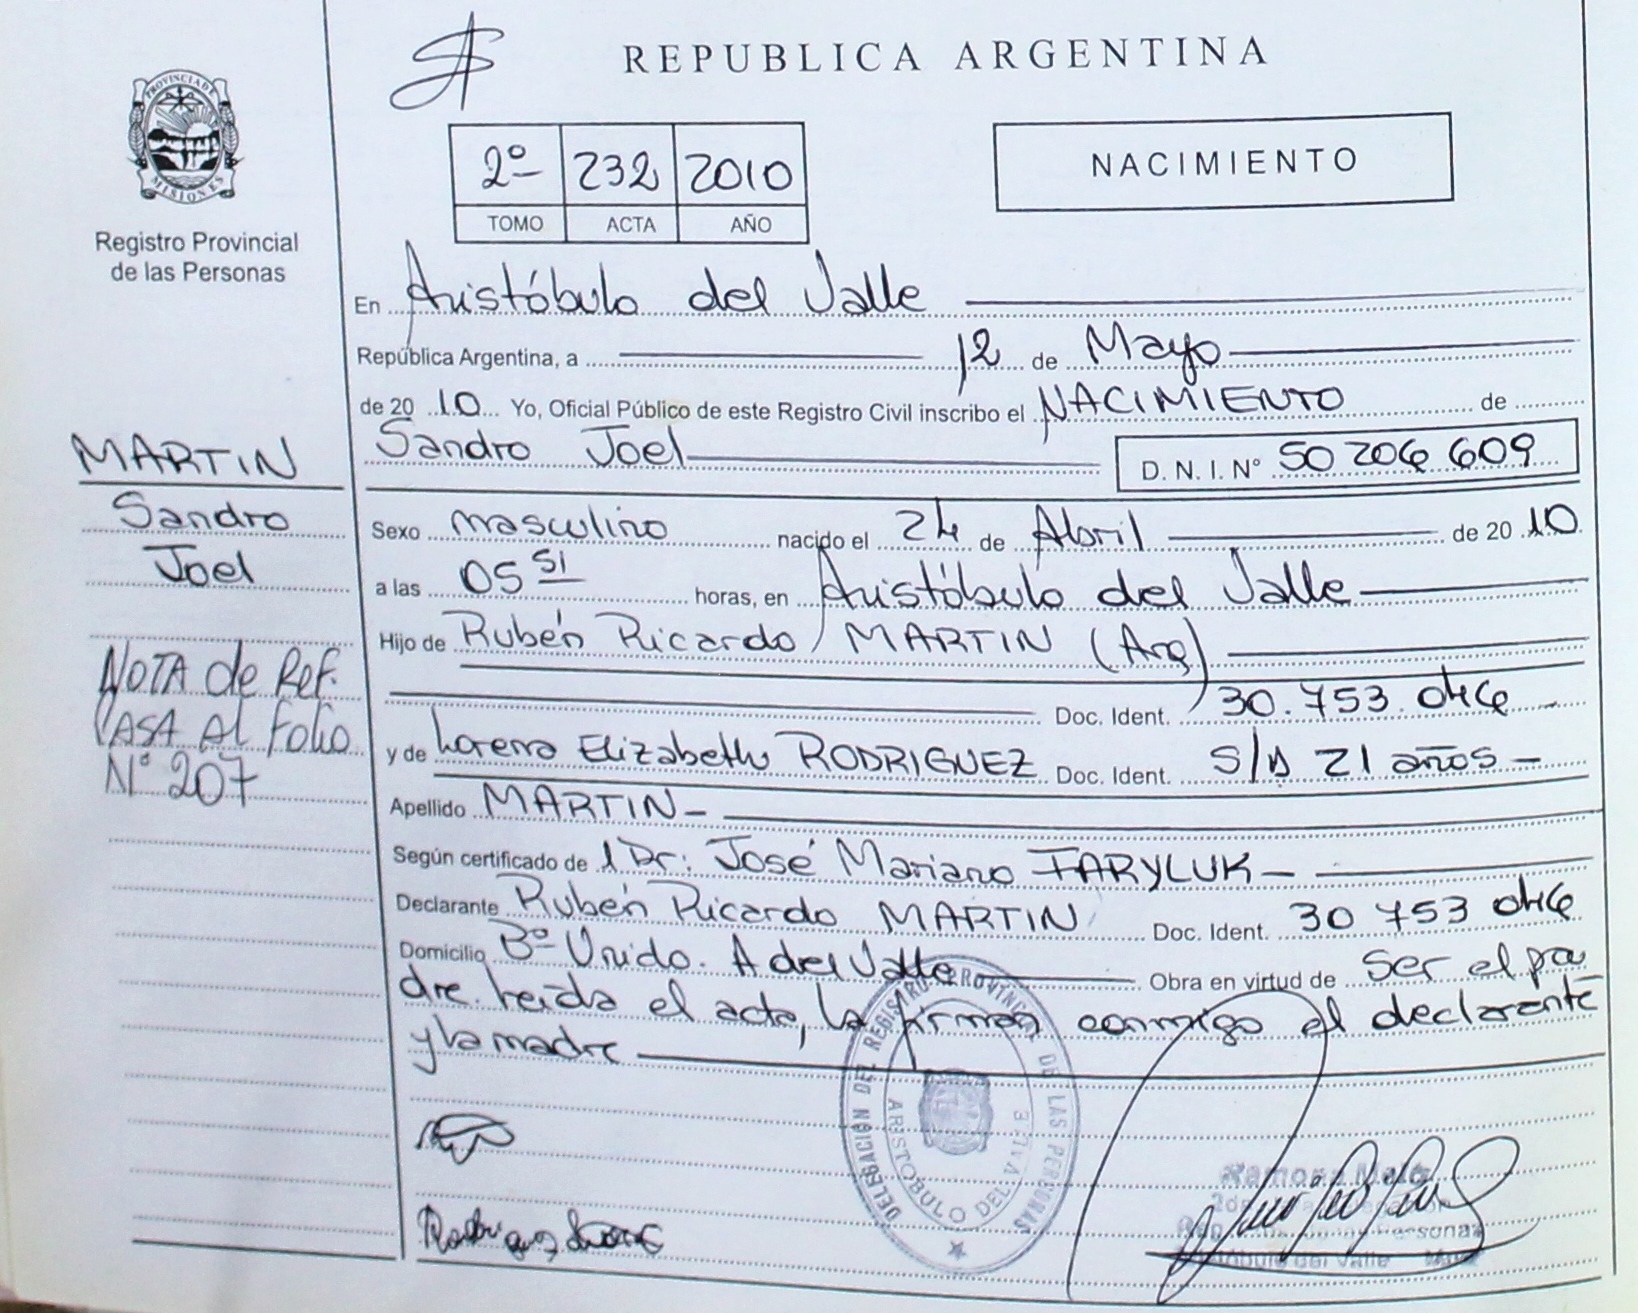 REPUBLICA ARGENTINA
PROVINCIA DE MISIONES
Registro Provincial
de las Personas
2º 232 2010
TOMO ACTA AÑO
NACIMIENTO
En Aristóbulo del Valle
República Argentina, a 12 de Mayo
de 2010 Yo, Oficial Público de este Registro Civil inscribo el NACIMIENTO de
Sandro Joel D. N. I. Nº 50 206 609
MARTIN
Sandro
Joel
NOTA de Ref.
PASA Al Folio
Nº 207
Sexo masculino nacido el 24 de Abril de 2010
a las 05 51 horas, en Aristóbulo del Valle
Hijo de Rubén Ricardo MARTIN (Arg)
Doc. Ident. 30.753.046
y de Lorena Elizabeth RODRIGUEZ Doc. Ident. S/D 21 años
Apellido MARTIN
Según certificado de l Dr: José Mariano IARYLUK
Declarante Rubén Ricardo MARTIN Doc. Ident. 30 753 046
Domicilio Bº Unido. A del Valle Obra en virtud de ser el pa
dre. Leída el acta, la firman conmigo el declarante
y la madre
DELEGACIÓN DEL REGISTRO PROVINCIAL DE LAS PERSONAS
ARISTOBULO DEL VALLE
Rodriguez